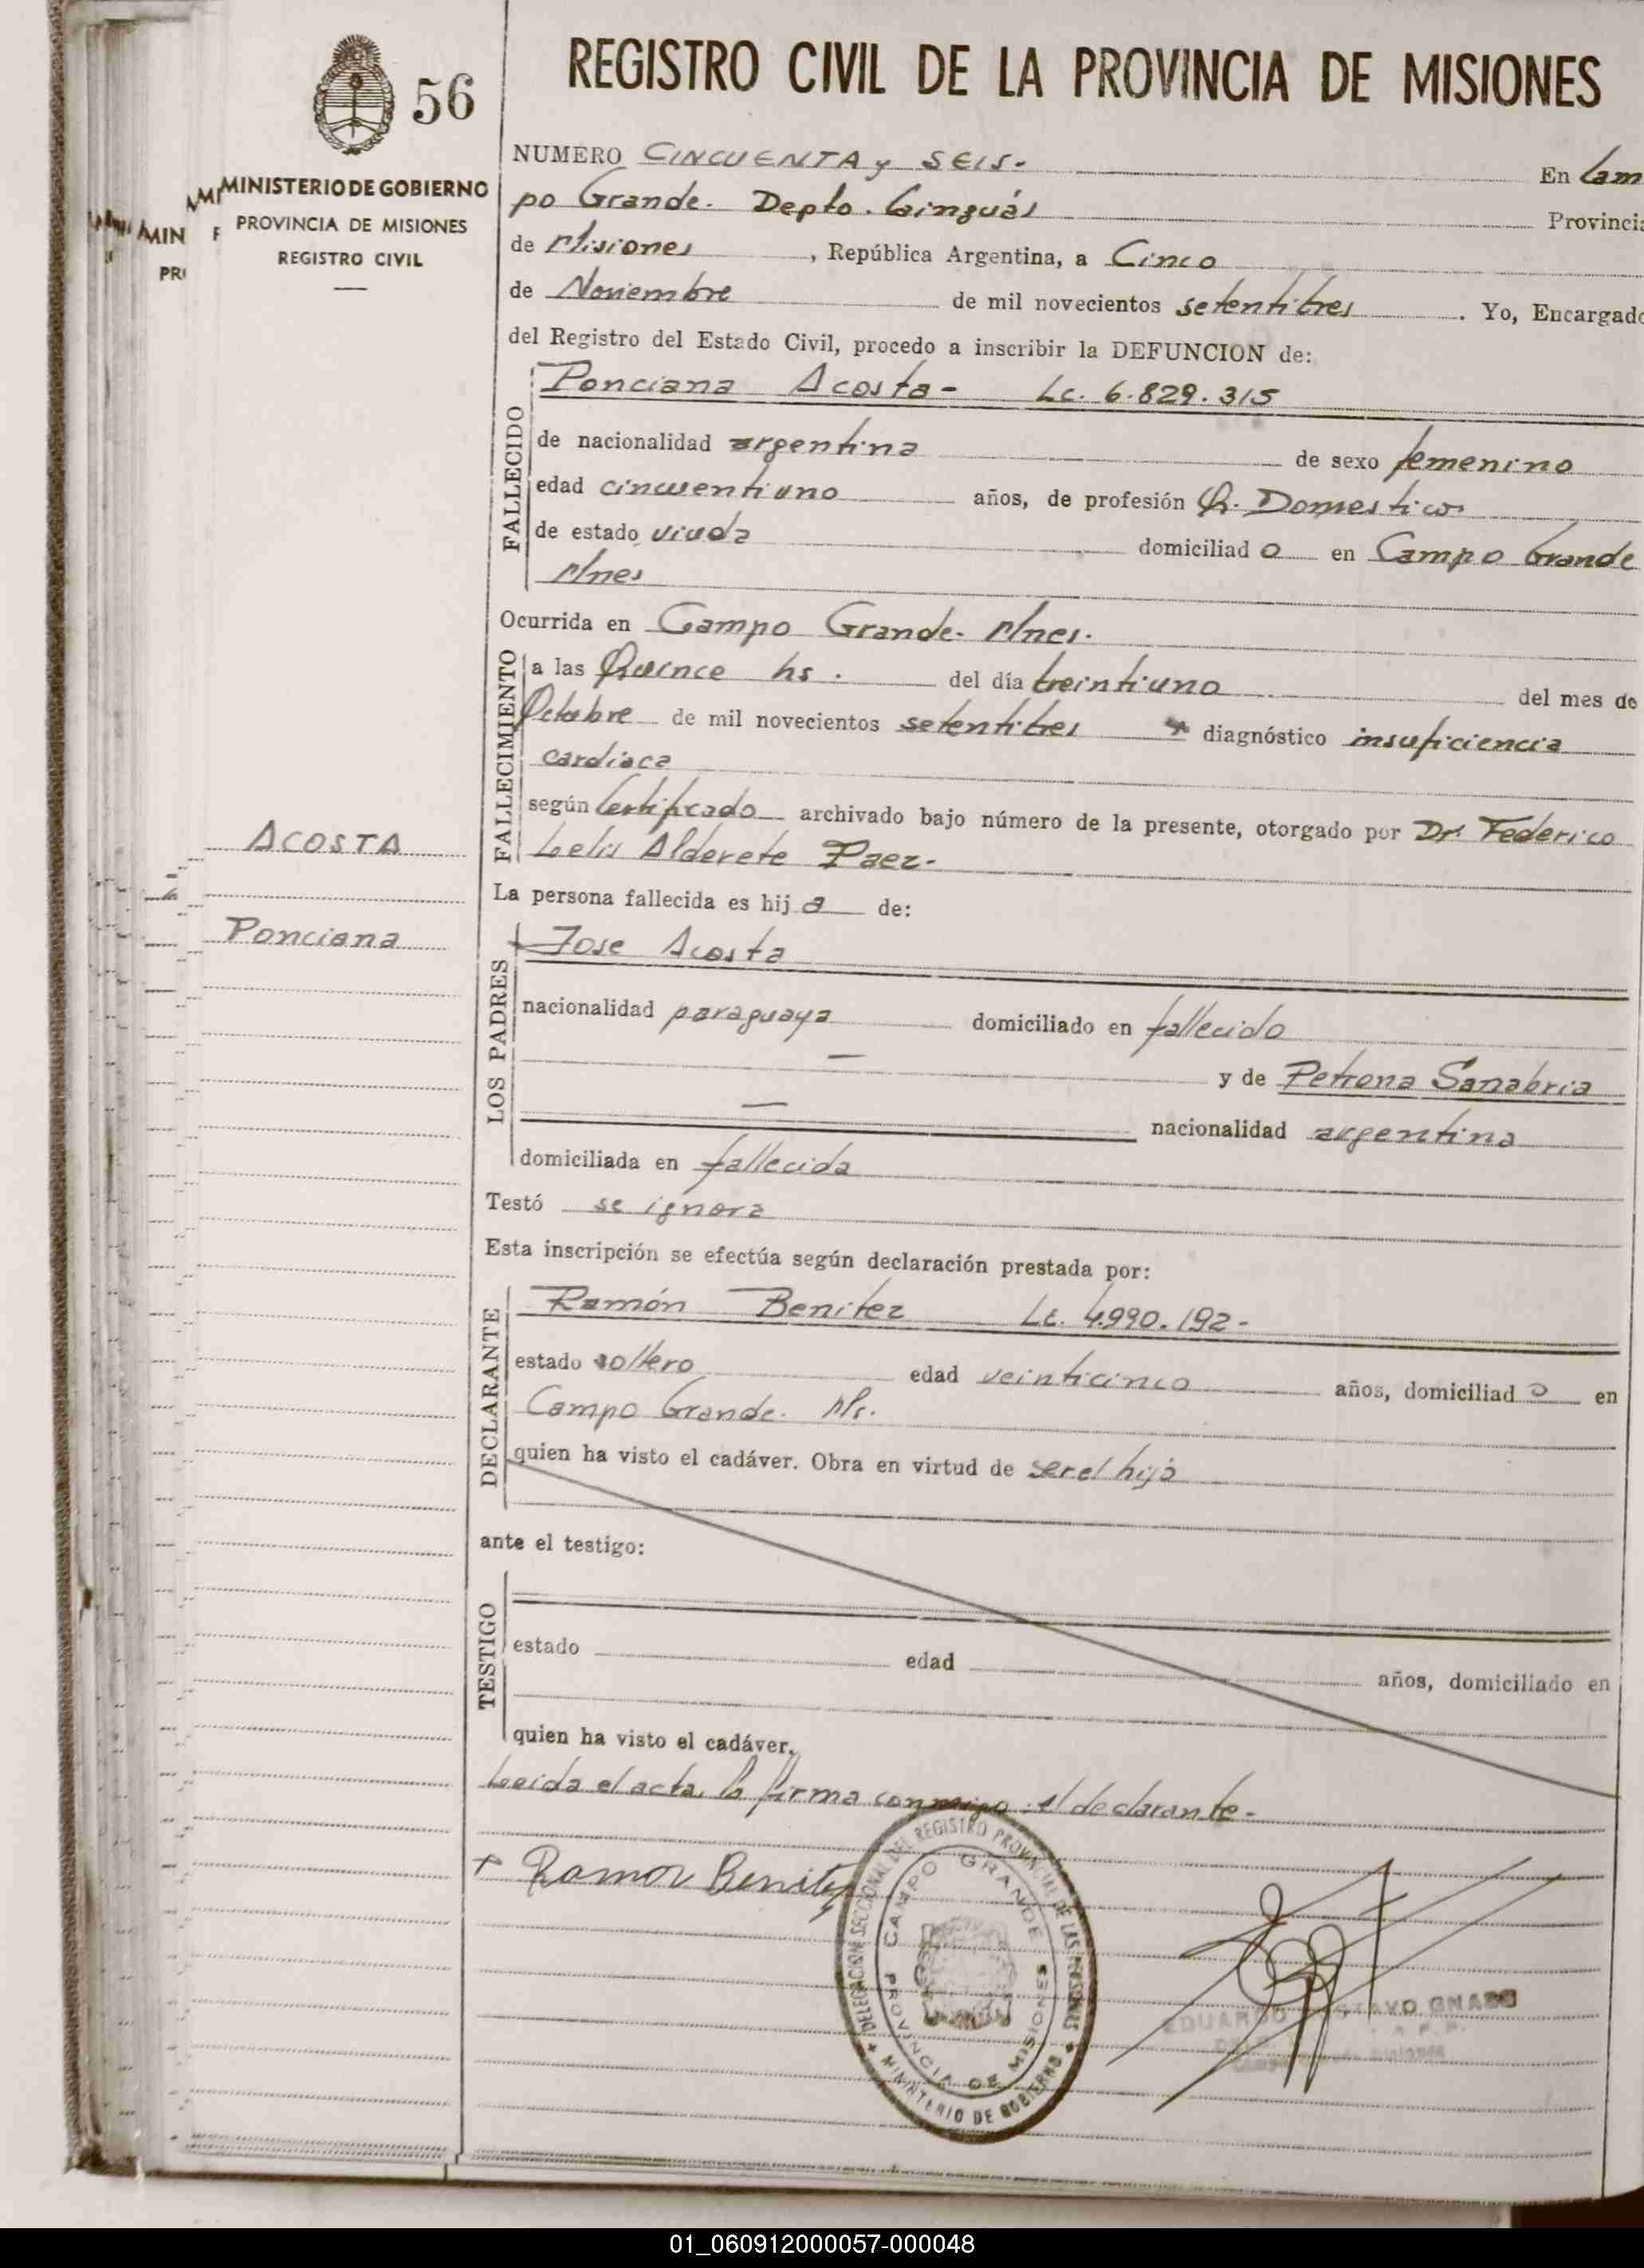 56
MINISTERIO DE GOBIERNO
PROVINCIA DE MISIONES
REGISTRO CIVIL
MIN
PRI
ACOSTA
Ponciana
REGISTRO CIVIL DE LA PROVINCIA DE MISIONES
NUMERO CINCUENTA y SEIS.- En Cam
po Grande. Depto. Cainguás Provincia
de Misiones, República Argentina, a Cinco
de Noviembre de mil novecientos setentitres. Yo, Encargado
del Registro del Estado Civil, procedo a inscribir la DEFUNCION de:
FALLECIDO
Ponciana Acosta- Lc. 6.829.315
de nacionalidad argentina de sexo femenino
edad cincuentiuno años, de profesión Q. Domestico
de estado viuda domiciliad o en Campo Grande
Mnes
Ocurrida en Campo Grande. Mnes.
FALLECIMIENTO
a las Quince hs. del día treintiuno del mes de
Octubre de mil novecientos setentitres diagnóstico insuficiencia
cardiaca
según Certificado archivado bajo número de la presente, otorgado por Dr. Federico
Lelis Alderete Paez.
La persona fallecida es hij a de:
LOS PADRES
Jose Acosta
nacionalidad paraguaya domiciliado en fallecido
— y de Petrona Sanabria
— nacionalidad argentina
domiciliada en fallecida
Testó se ignora
Esta inscripción se efectúa según declaración prestada por:
DECLARANTE
Ramón Benitez LE. 4.990.192-
estado soltero edad veinticinco años, domiciliad o en
Campo Grande. Ms.
quien ha visto el cadáver. Obra en virtud de ser el hijo
ante el testigo:
TESTIGO
estado edad años, domiciliado en
quien ha visto el cadáver.
Leida el acta, la firma conmigo el declarante-
+ Ramon Benitez
DELEGACION SECCIONAL DEL REGISTRO PROVINCIAL DE LAS PERSONAS
CAMPO GRANDE
PROVINCIA DE MISIONES
MINISTERIO DE GOBIERNO
EDUARDO
01_060912000057-000048